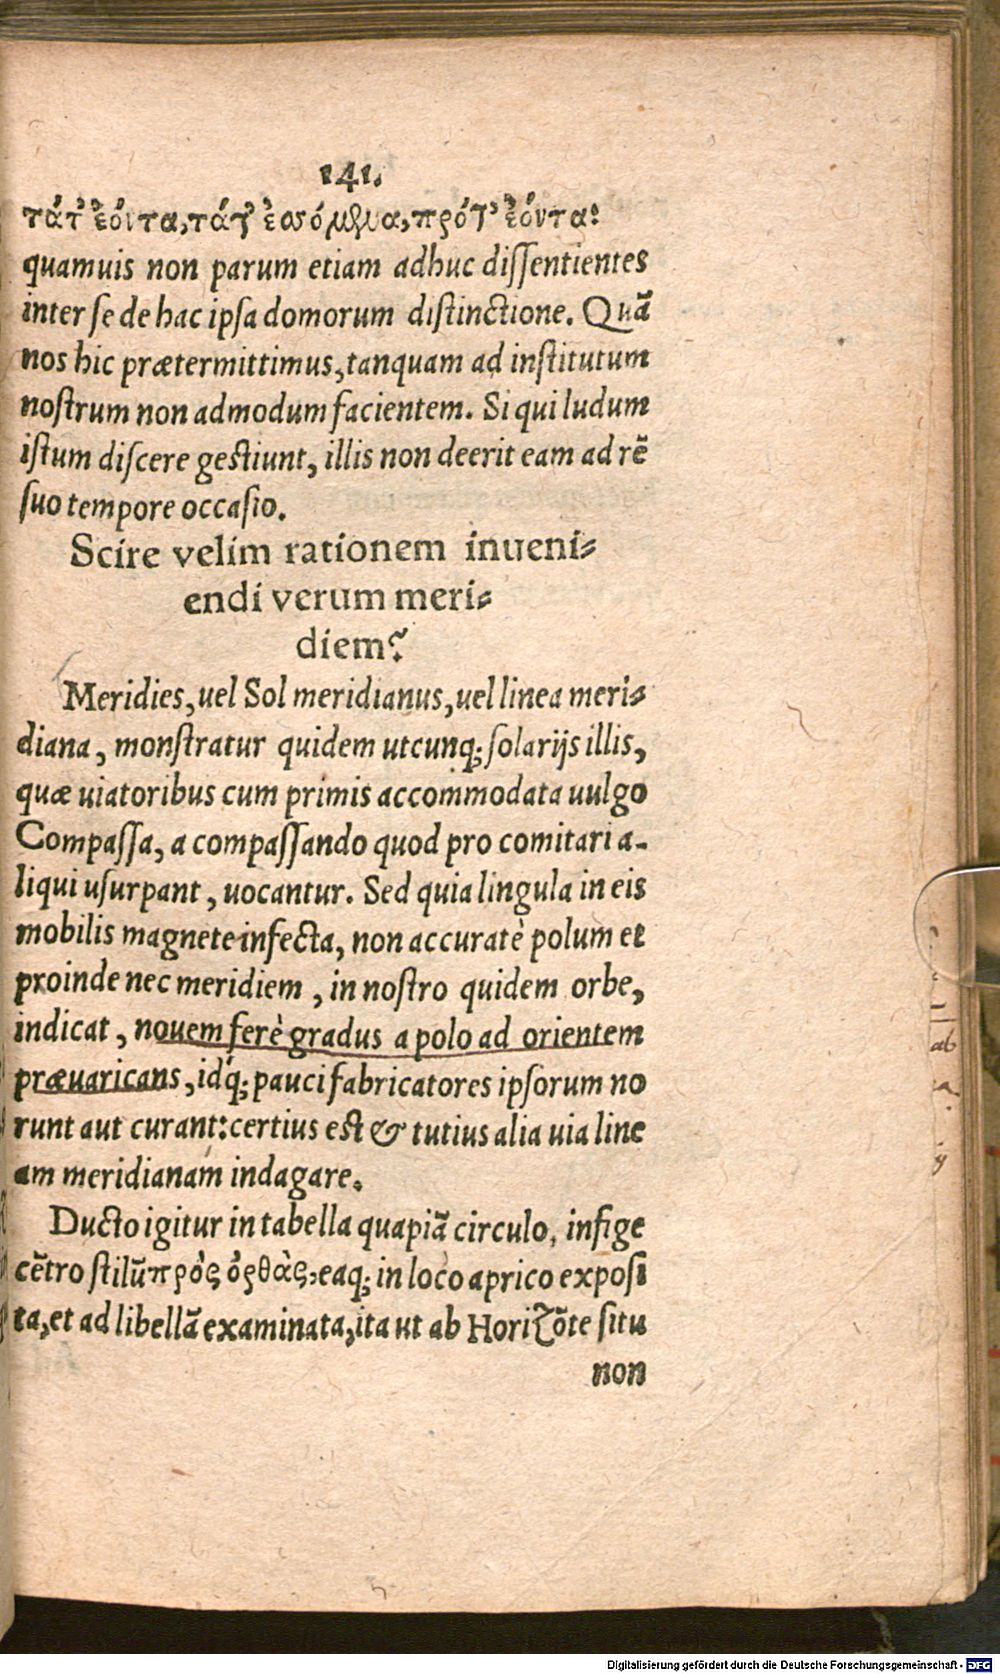 141.
τάτ᾽ ἐόντα, τάτ᾽ ἐσόμενα, πρότ᾽ ἐόντα:
quamuis non parum etiam adhuc dissentientes
inter se de hac ipsa domorum distinctione. Quā
nos hic prætermittimus, tanquam ad institutum
nostrum non admodum facientem. Si qui ludum
istum discere gestiunt, illis non deerit eam ad rē
suo tempore occasio.
Scire velim rationem inueni⸗
endi verum meri⸗
diem?
Meridies, uel Sol meridianus, uel linea meri⸗
diana, monstratur quidem utcunq; solarijs illis,
quæ uiatoribus cum primis accommodata uulgo
Compassa, a compassando quod pro comitari a-
liqui usurpant, uocantur. Sed quia lingula in eis
mobilis magnete infecta, non accuratè polum et
proinde nec meridiem, in nostro quidem orbe,
indicat, nouem ferè gradus a polo ad orientem
præuaricans, idq́; pauci fabricatores ipsorum no
runt aut curant: certius est & tutius alia uia line
am meridianam indagare.
Ducto igitur in tabella quapiā circulo, infige
cētro stilū πρὸς ὀρθὰς, eaq; in loco aprico exposi
ta, et ad libellā examinata, ita ut ab Horizōte situ
non
ab
Digitalisierung gefördert durch die Deutsche Forschungsgemeinschaft - DFG